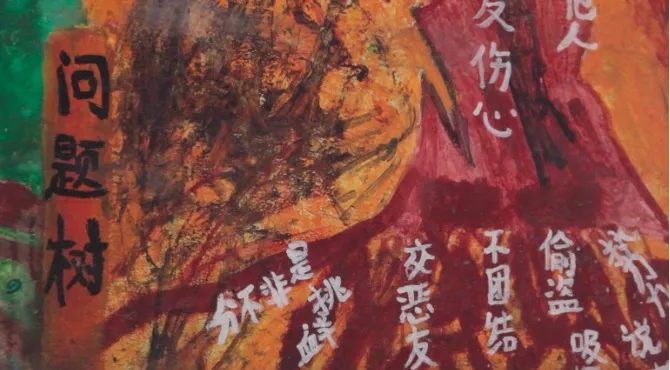 问题树
伤心
人
是非不分
挑衅
交恶友
不团结
偷盗
吸
说